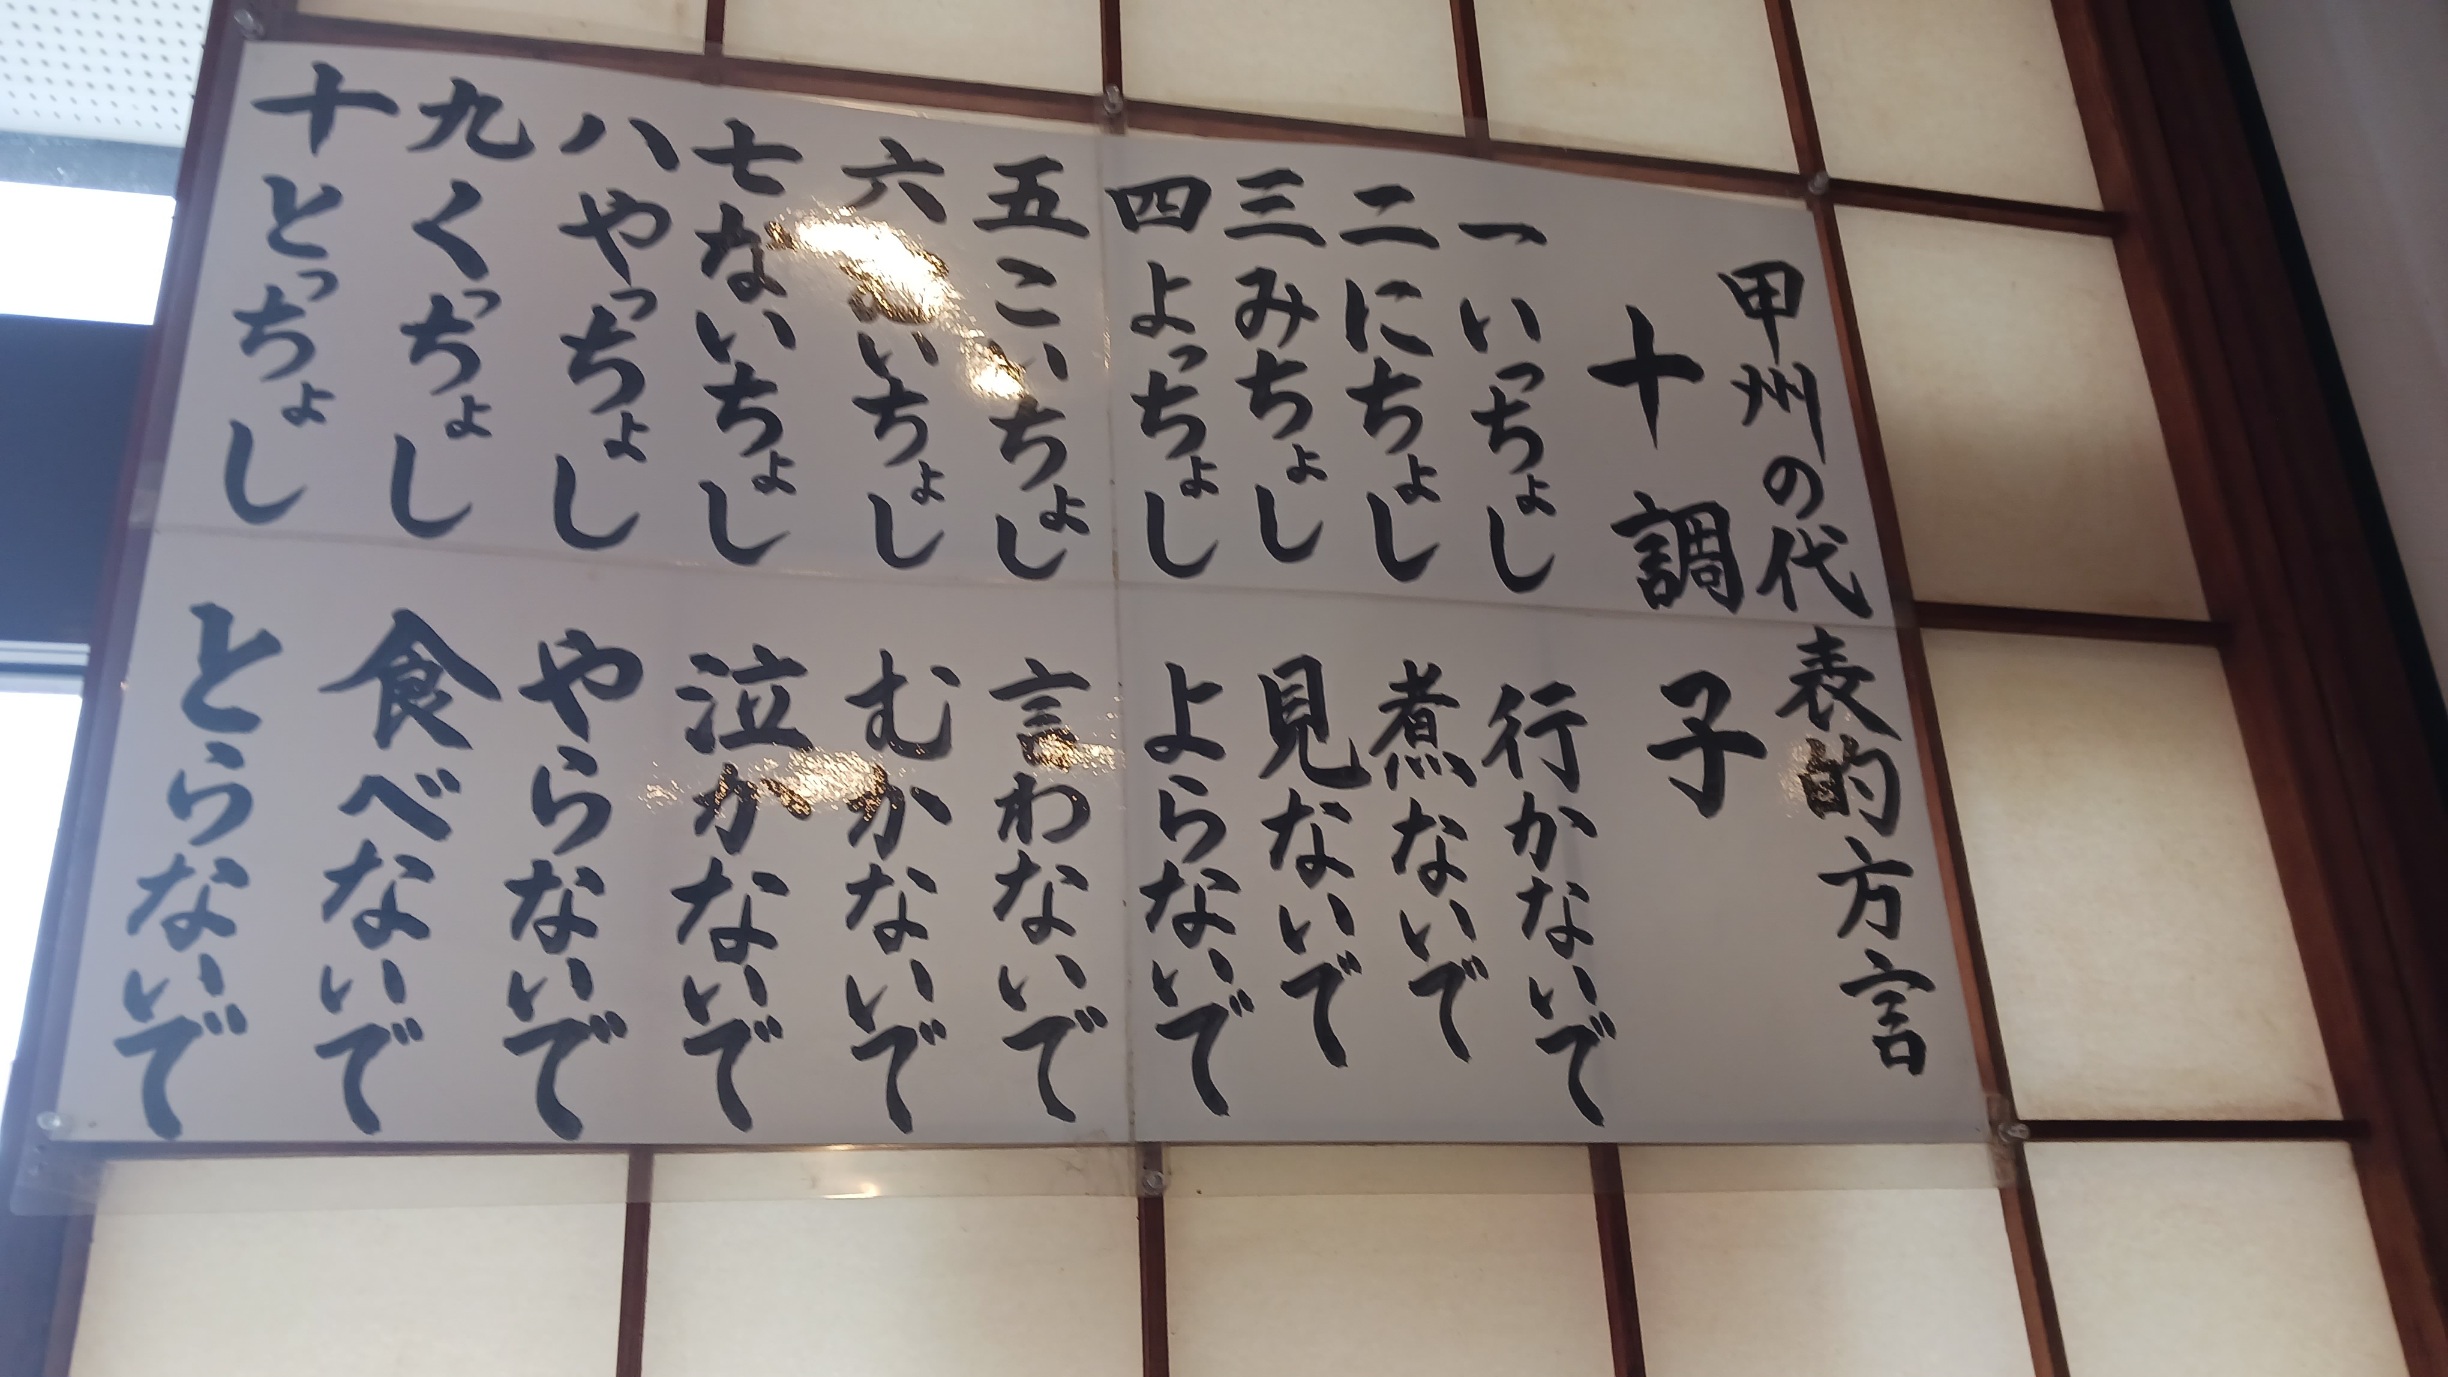 甲州の代表的方言
十調子
一 いっちょし 行かないで
二 にちょし 煮ないで
三 みちょし 見ないで
四 よっちょし よらないで
五 こいっちょし 言わないで
六 むいちょし むかないで
七 ないちょし 泣かないで
八 やっちょし やらないで
九 くっちょし 食べないで
十 とっちょし とらないで